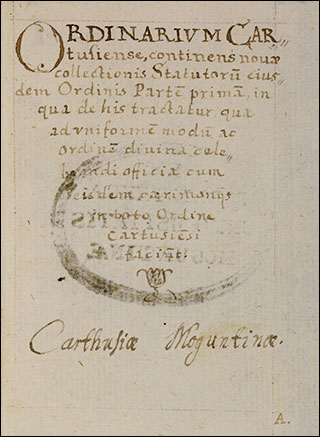 ORDINARIVM CAR=
tusiense, continens nouæ
collectionis Statutorū eius=
dem Ordinis Partē primā, in
qua de his tractatur qua
ad vniformē modū ac
ordinē diuina cele=
brandi officia cum
eisdem cærimoniis
in toto Ordine
Cartusiēsi
faciūt.
Carthusiæ Moguntinæ.
A.